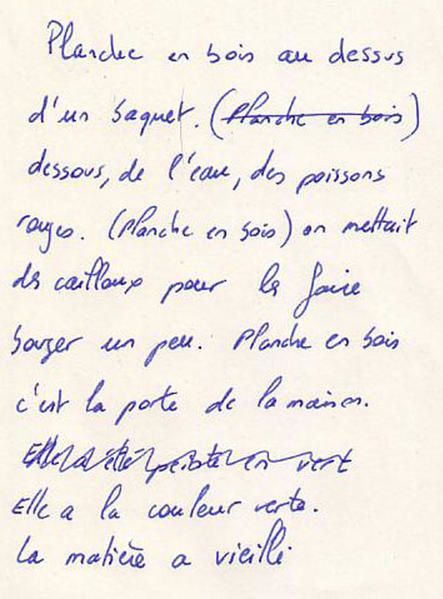 Planche en bois au dessus
d'un baquet. (Planche en bois)
dessous, de l'eau, des poissons
rouges. (Planche en bois) on mettait
des cailloux pour les faire
bouger un peu. Planche en bois
c'est la porte de la maison.
Elle a été peinte en vert
Elle a la couleur verte.
La matière a vieilli